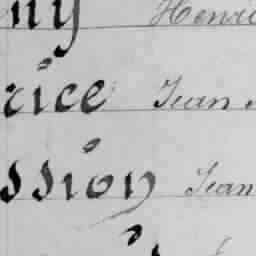 ny Henri
rice Jean
ssion Jean